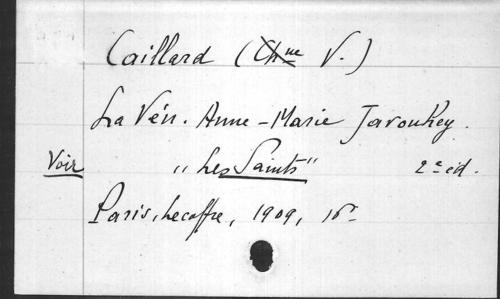 Caillard (Chne V.)
La Vén. Anne-Marie Javouhey.
Voir "Les Saints" 2e éd.
Paris, Lecoffre, 1909, 16°